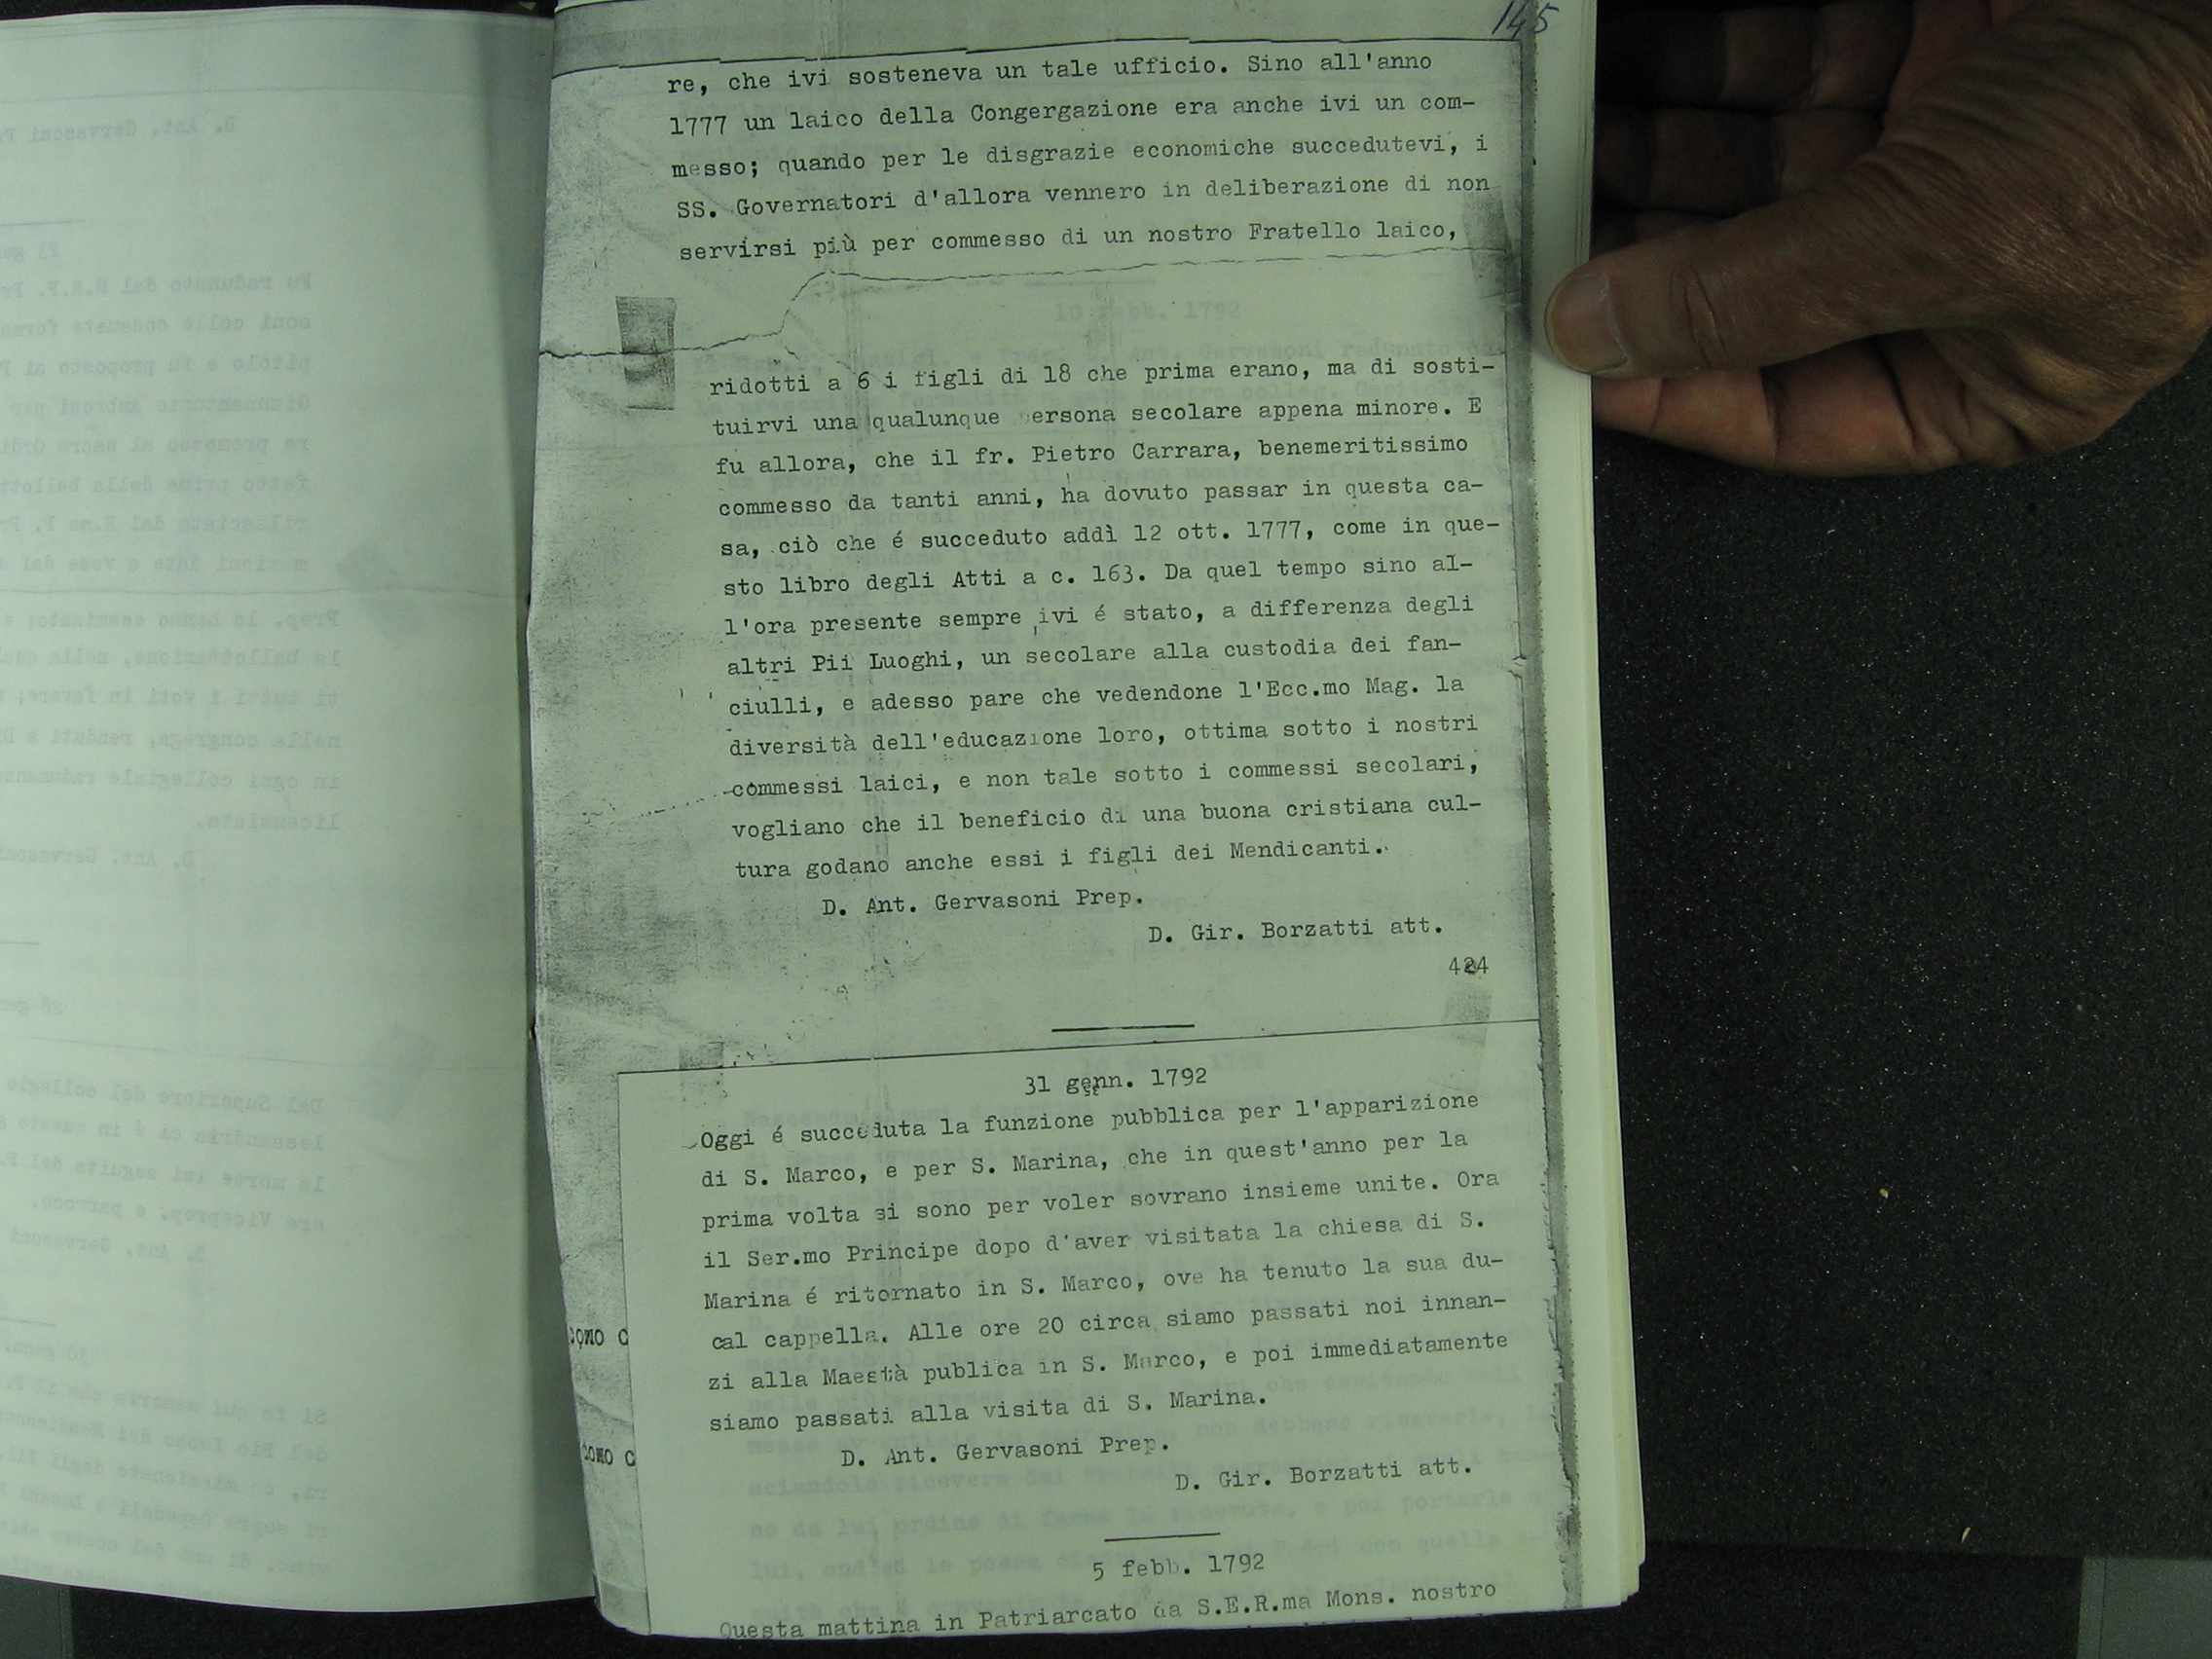 145
re, che ivi sosteneva un tale ufficio. Sino all'anno
1777 un laico della Congergazione era anche ivi un com-
messo; quando per le disgrazie economiche succedutevi, i
SS. Governatori d'allora vennero in deliberazione di non
servirsi più per commesso di un nostro Fratello laico,
ridotti a 6 i figli di 18 che prima erano, ma di sosti-
tuirvi una qualunque persona secolare appena minore. E
fu allora, che il fr. Pietro Carrara, benemeritissimo
commesso da tanti anni, ha dovuto passar in questa ca-
sa, ciò che é succeduto addì 12 ott. 1777, come in que-
sto libro degli Atti a c. 163. Da quel tempo sino al-
l'ora presente sempre ivi é stato, a differenza degli
altri Pii Luoghi, un secolare alla custodia dei fan-
ciulli, e adesso pare che vedendone l'Ecc.mo Mag. la
diversità dell'educazione loro, ottima sotto i nostri
commessi laici, e non tale sotto i commessi secolari,
vogliano che il beneficio di una buona cristiana cul-
tura godano anche essi i figli dei Mendicanti.
D. Ant. Gervasoni Prep.
D. Gir. Borzatti att.
424
31 genn. 1792
Oggi é succeduta la funzione pubblica per l'apparizione
di S. Marco, e per S. Marina, che in quest'anno per la
prima volta si sono per voler sovrano insieme unite. Ora
il Ser.mo Principe dopo d'aver visitata la chiesa di S.
Marina é ritornato in S. Marco, ove ha tenuto la sua du-
cal cappella. Alle ore 20 circa siamo passati noi innan-
zi alla Maestà publica in S. Marco, e poi immediatamente
siamo passati alla visita di S. Marina.
D. Ant. Gervasoni Prep.
D. Gir. Borzatti att.
5 febb. 1792
Questa mattina in Patriarcato da S.E.R.ma Mons. nostro